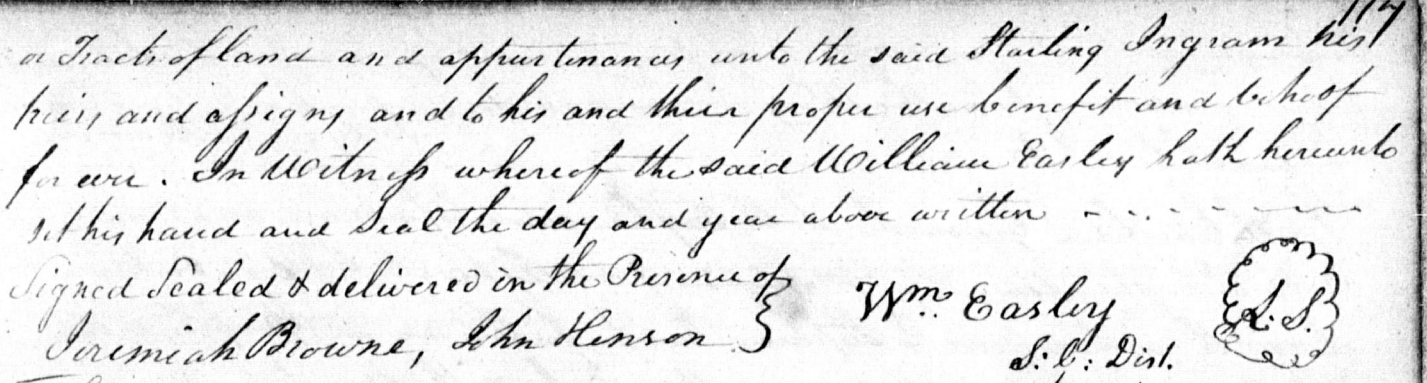 117
or Tracts of land and appurtenances unto the said Starling Ingram his
heirs and assigns and to his and their proper use benefit and behoof
for ever. In Witness whereof the said William Easley hath hereunto
set his hand and Seal the day and year above written
Signed Sealed & delivered in the Presence of
Jeremiah Browne, John Henson
Wm. Easley
L. S.
S: C: Dist.